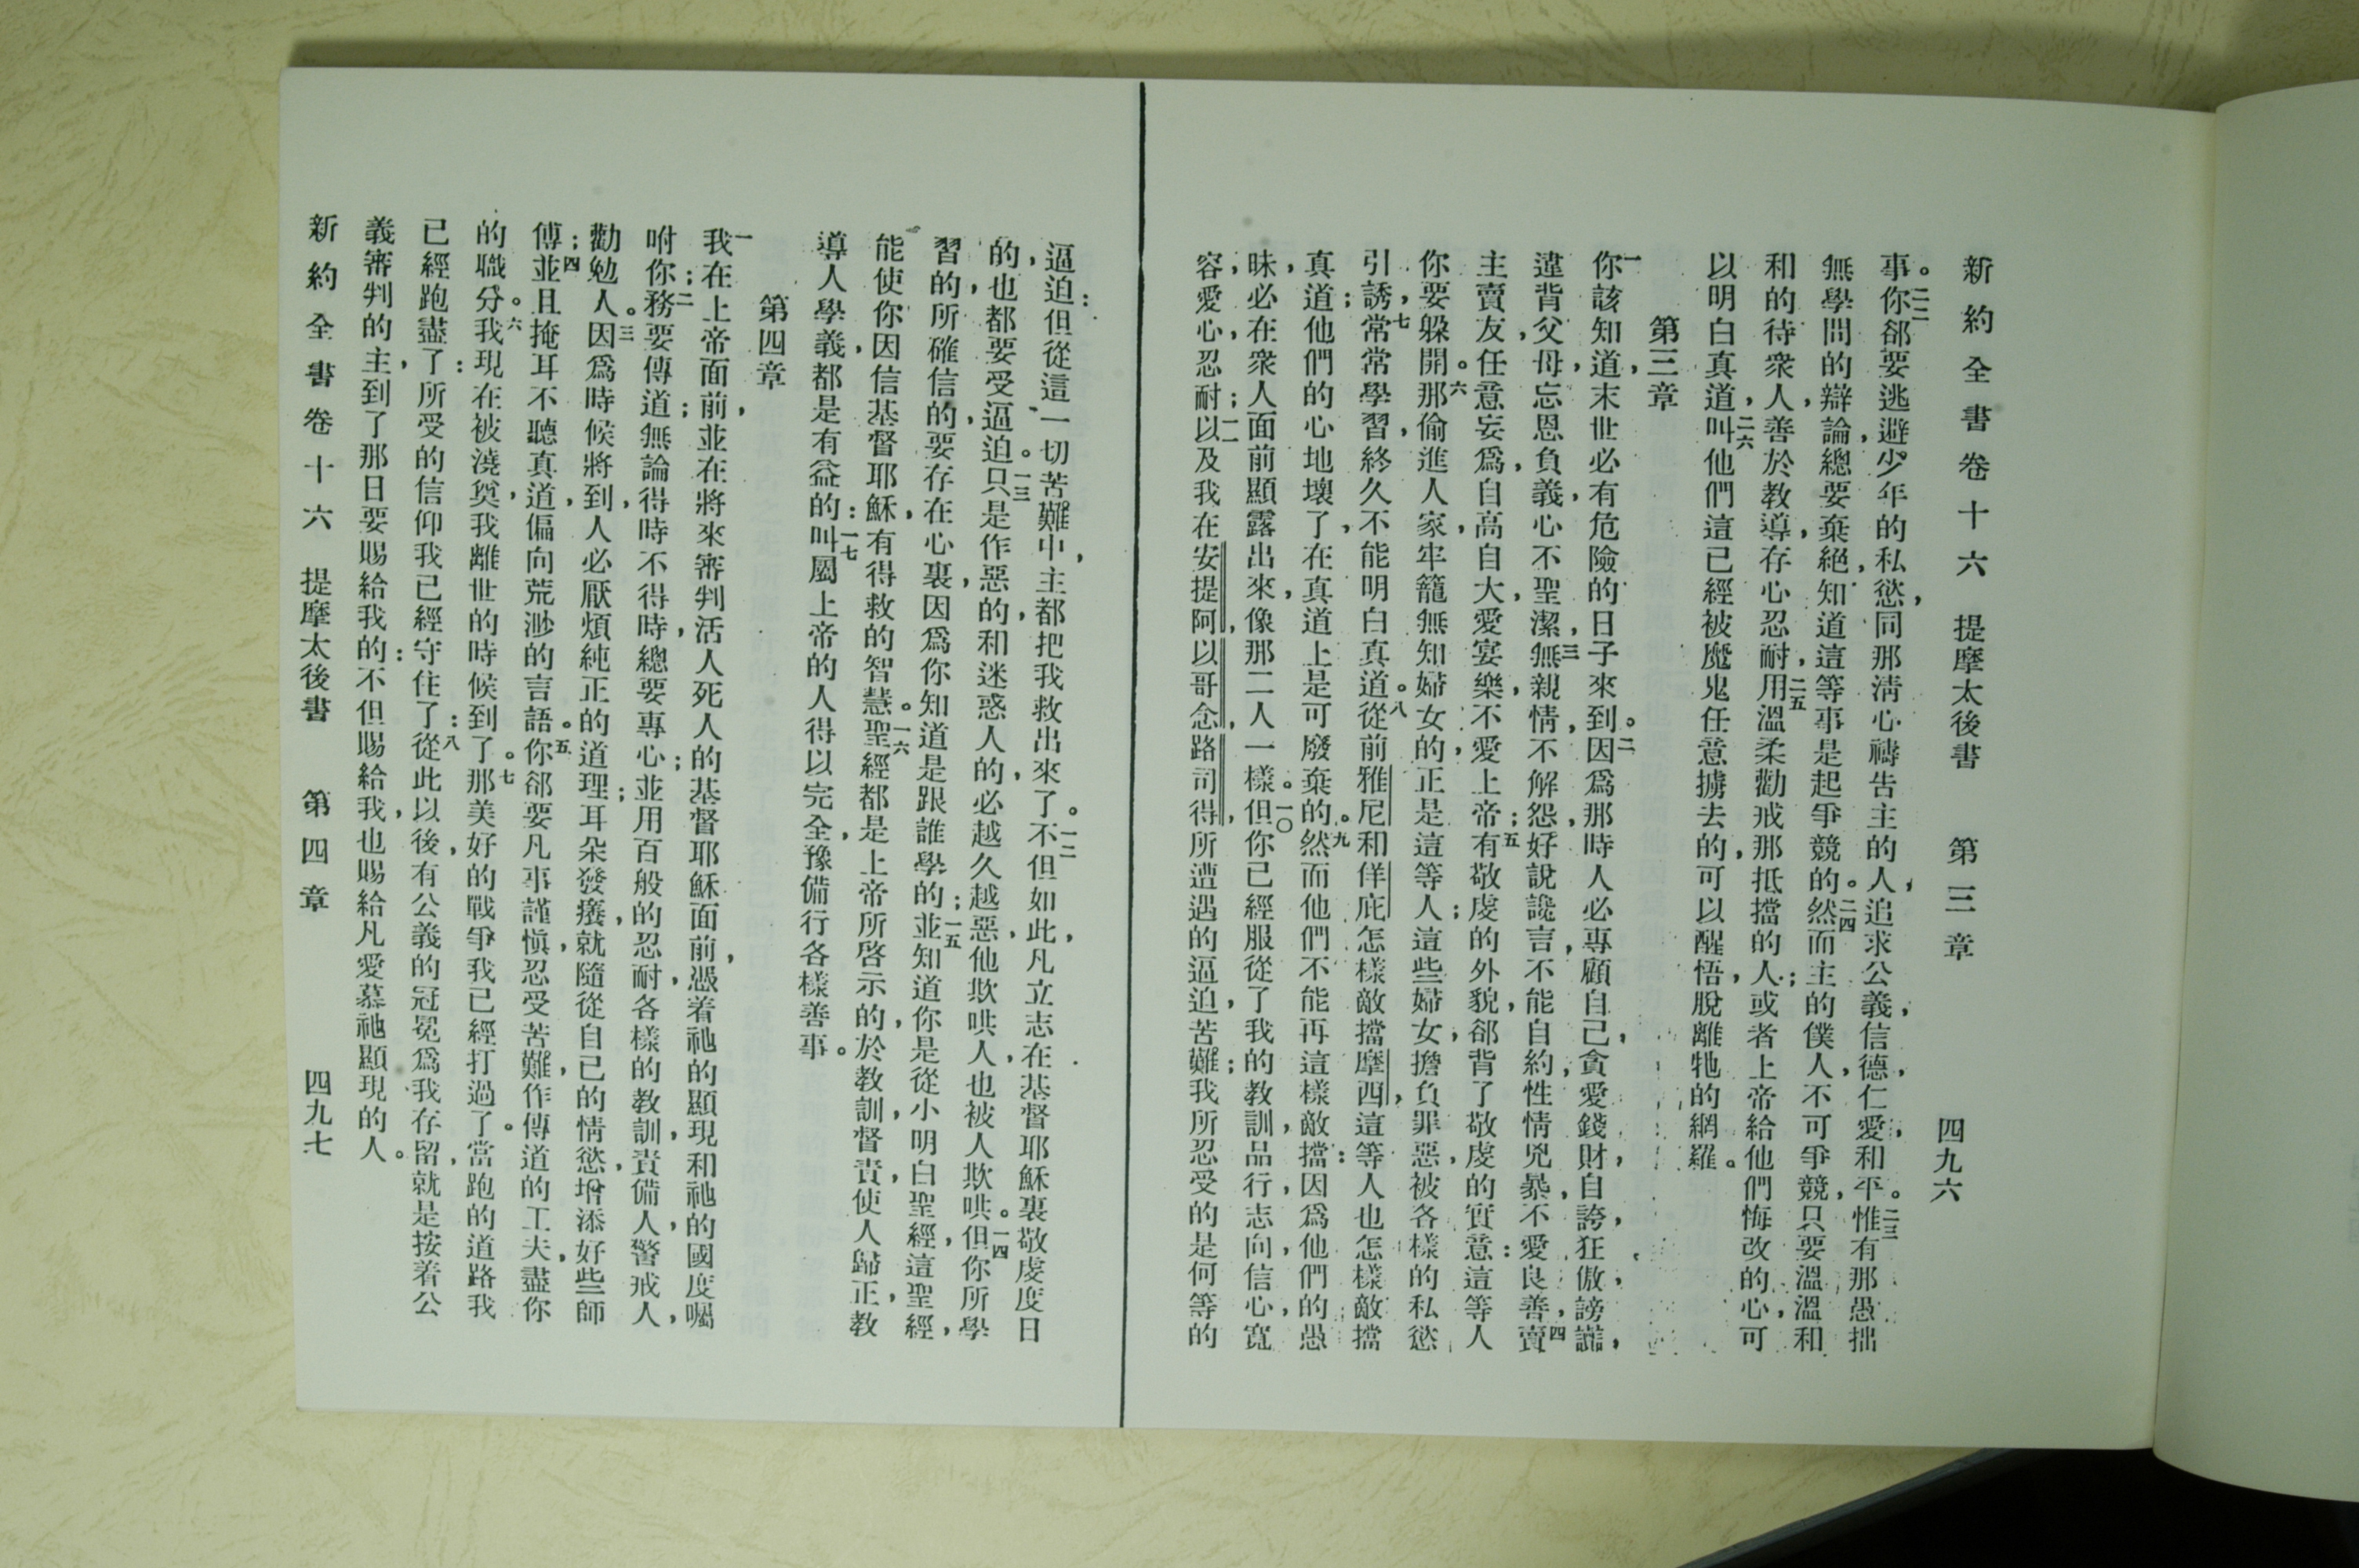 新約全書卷十六 提摩太後書 第三章 四九六
事。二二你卻要逃避少年的私慾，同那清心禱告主的人，追求公義，信德，仁愛，和平。二三惟有那愚拙
無學問的辯論，總要棄絕，知道這等事是起爭競的。二四然而主的僕人，不可爭競，只要溫溫和
和的待衆人，善於教導，存心忍耐，二五用溫柔勸戒那抵擋的人；或者上帝給他們悔改的心，可
以明白真道，二六叫他們這已經被魔鬼任意擄去的，可以醒悟，脫離牠的網羅。
第三章
一你該知道，末世必有危險的日子來到。二因爲那時人必專顧自己，貪愛錢財，自誇，狂傲，謗讟，
違背父母，忘恩負義，心不聖潔，三無親情，不解怨，好說讒言，不能自約，性情兇暴，不愛良善，四賣
主賣友，任意妄爲，自高自大，愛宴樂，不愛上帝；五有敬虔的外貌，卻背了敬虔的實意：這等人
你要躱開。六那偷進人家，牢籠無知婦女的，正是這等人；這些婦女，擔負罪惡，被各樣的私慾
引誘，七常常學習，終久不能明白真道。八從前雅尼和佯庇怎樣敵擋摩西，這等人也怎樣敵擋
真道；他們的心地壞了，在真道上是可廢棄的。九然而他們不能再這樣敵擋：因爲他們的愚
昧，必在衆人面前顯露出來，像那二人一樣。一〇但你已經服從了我的教訓，品行，志向，信心，寬
容，愛心，忍耐；一一以及我在安提阿，以哥念，路司得，所遭遇的逼迫，苦難；我所忍受的是何等的
逼迫：但從這一切苦難中，主都把我救出來了。一二不但如此，凡立志在基督耶穌裏敬虔度日
的，也都要受逼迫。一三只是作惡的，和迷惑人的，必越久越惡，他欺哄人，也被人欺哄。一四但你所學
習的，所確信的，要存在心裏，因爲你知道是跟誰學的；一五並知道你是從小明白聖經，這聖經，
能使你因信基督耶穌，有得救的智慧。一六聖經都是上帝所啓示的，於教訓，督責，使人歸正，教
導人學義，都是有益的：一七叫屬上帝的人得以完全，豫備行各樣善事。
第四章
一我在上帝面前，並在將來審判活人死人的基督耶穌面前，憑着祂的顯現和祂的國度囑
咐你；二務要傳道；無論得時不得時，總要專心；並用百般的忍耐，各樣的教訓，責備人，警戒人，
勸勉人。三因爲時候將到，人必厭煩純正的道理；耳朵發癢，就隨從自己的情慾，增添好些師
傅；四並且掩耳不聽真道，偏向荒渺的言語。五你卻要凡事謹愼，忍受苦難，作傳道的工夫，盡你
的職分。六我現在被澆奠，我離世的時候到了。七那美好的戰爭，我已經打過了。當跑的道路，我
已經跑盡了：所受的信仰，我已經守住了：八從此以後，有公義的冠冕爲我存留，就是按着公
義審判的主，到了那日要賜給我的：不但賜給我，也賜給凡愛慕祂顯現的人。
新約全書卷十六 提摩太後書 第四章 四九七